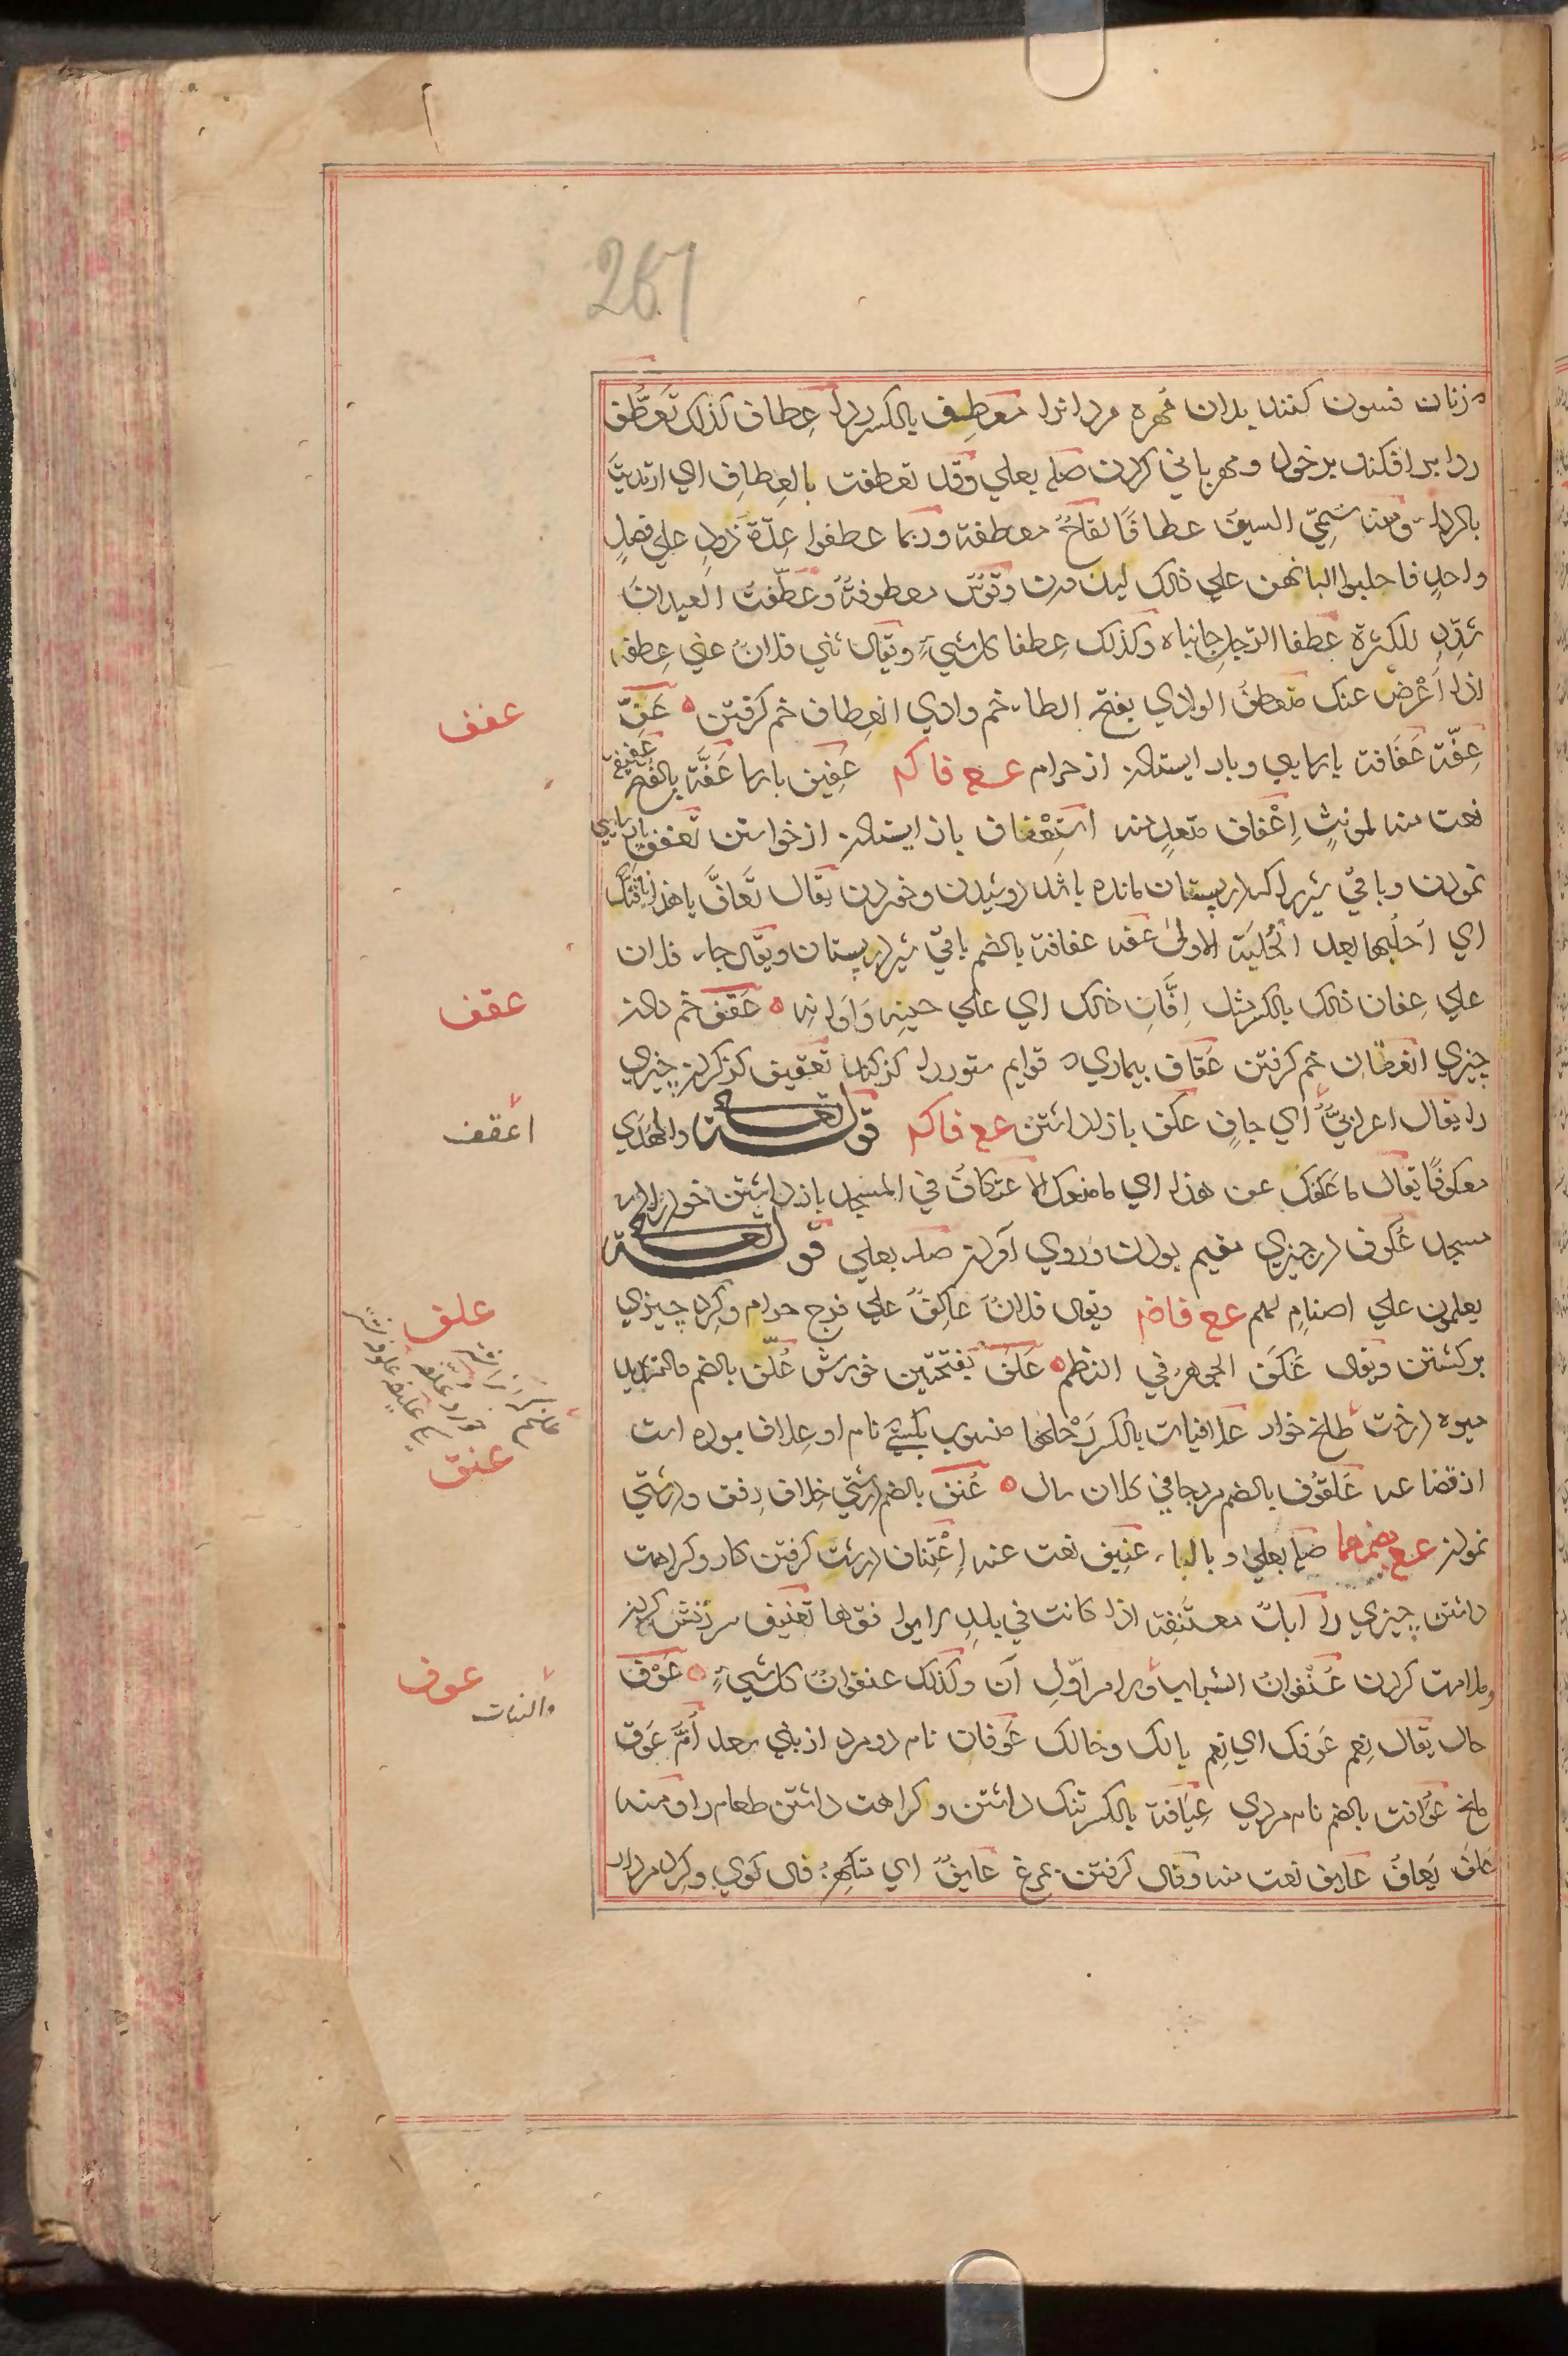 267
زنان فسون کنند بدان مهره مردانرا معطِف بالکسر ردا عِطاف کذلک تَعَطُّف
ردا بر افکندن بر خود و مهربانی کردن صله بعلی وقد تعطفت بالعِطافِ ای ارتدیتَ
بالرداء ومنه سُمّیَ السیفُ عطافًا لقاحٌ معطفة وربما عطفوا عِدّةَ ذَودٍ علی فصیلٍ
واحدٍ فاحلبوا البانهن علی ذلک لیدررن وقوسٌ معطوفةٌ وعطّفتُ العیدانَ
شُدِّدَ للکثرة عِطفا الرجل جانباه وکذلک عِطفا کل شیءٍ ویقال ثنی فلانٌ عنی عِطفه
اذا اَعْرَضَ عنک منعطَفُ الوادی بفتح الطاء خم وادی انعِطاف خم گرفتن ه عَفَّ
عِفّة عَفَافة پارسایی وباز ایستادن از حرام عـع فاکم عَفِیف پارسا عَفَّة بالفتح عفیفة
نعت منه لمؤنثٍ اِعْفاف متعدٍ منه اسْتِعْفاف باز ایستادن از خواستن تعفف پارسایی
نمودن وباقی شیر را که در پستان مانده باشد دوشیدن وخوردن یقال تَعافَّ یا هذا ناقتک
ای اَحلبها بعد الحَلبة الاولی عفة عفافة بالضم باقی شیر در پستان ویقال جاء فلان
علی عِفان ذلک بالکسر مثل اِفَّانِ ذلک ای علی حینه وَاَوانه ه عَقف خم دادن
چیزی انعِقاف خم گرفتن عُقاف بیماری که قوایم ستور را کژ کند تعقیف کژ کردن چیزی
را یقال اعرابیٌّ ای جافٍ عکف باز داشتن عـع فاکم قوله تعالی والهَدیَ
معکوفًا یقال ما عَکفَکَ عن هذا ای ما منعک الاعتکافُ فی المسجد باز داشتن خود را در
مسجد عُکوف در چیزی مقیم بودن وروی آوردن صله بعلی قوله تعالی
یعکفون علی اصنامٍ لهم عـع فاضم ویقال فلانٌ عاکِفٌ علی فرج حرام وگرد چیزی
برگشتن ویقال عَکَفَ الجوهرُ فی النظم ه عَلَف بفتحتین خورش عُلَّف بالضم والتشدید
میوه درخت طلح خوار علافیات بالکسر رَحْلها منسوب بکسی نام او عِلاف بوده است
از قضاعه عُلفوف بالضم مرد جافی کلان سال ه عُنف بالضم درشتی خِلاف رِفق ودرشتی
نمودن عـع بضمهما صله بعلی وبالباء عَنِیف نعت عنه اِعْتِناف درشت گرفتن کار وکراهت
داشتن چیزی را ابلٌ معتَنِفة اذا کانت فی بلدٍ لا یوافقها تعنیف سرزنش کردن
وملامت کردن عُنْفوانُ الشباب ویرا من اوّلِ آن وکذلک عنفوانُ کل شیءٍ ه عَوْف
حال یقال نِعِم عَوفک ای نِعِم بالک وحالک عَوفان نام دو مرد از بنی سعد اُمُّ عَوف
ملخ عُوافة بالضم نام مردی عِیَافة بالکسر تنک داشتن وکراهت داشتن طعام را ومنه
عاف یَعافُ عایف نعت منه وفال گرفتن بمرغ عایفٌ ای متکهن فال گوی وگرد مردار
عفف
عقف
اعقف
علف
عنف
عوف
والنبات